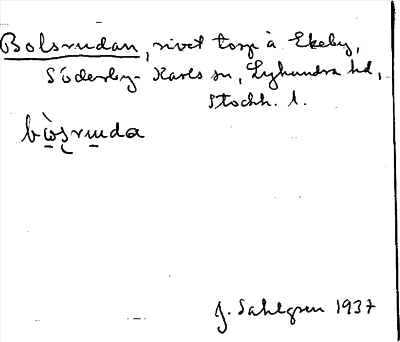 Bolsrudan, rivet torp å Ekeby,
Söderby-Karls sn, Lyhundra hd,
Stockh. l.
bò̤şrṳda
J. Sahlgren 1937